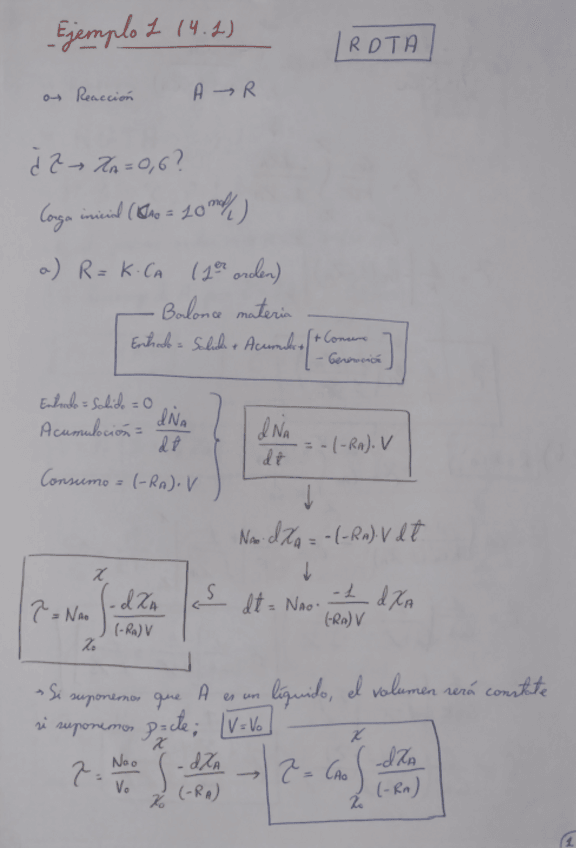 Ejemplo 1 (4.1)
RDTA
o→ Reacción A → R
¿ τ → XA = 0,6?
Carga inicial (CA0 = 10 mol/L)
a) R = K·CA (1er orden)
Balance materia
Entrada = Salida + Acumula + [+ Consumo
- Generación]
Entrada = Salida = 0
Acumulación = dNA/dt
Consumo = (-RA)·V
dNA/dt = -(-RA)·V
↓
NA0·dXA = -(-RA)·V dt
↓
dt = NA0 · -1/(-RA)V dXA
← S
τ = NA0 ∫ X X0 -dXA/(-RA)V
→ Si suponemos que A es un líquido, el volumen será constate
si suponemos ρ=cte; V=V0
τ = NA0/V0 ∫ X X0 -dXA/(-RA) → τ = CA0 ∫ X X0 -dXA/(-RA)
1